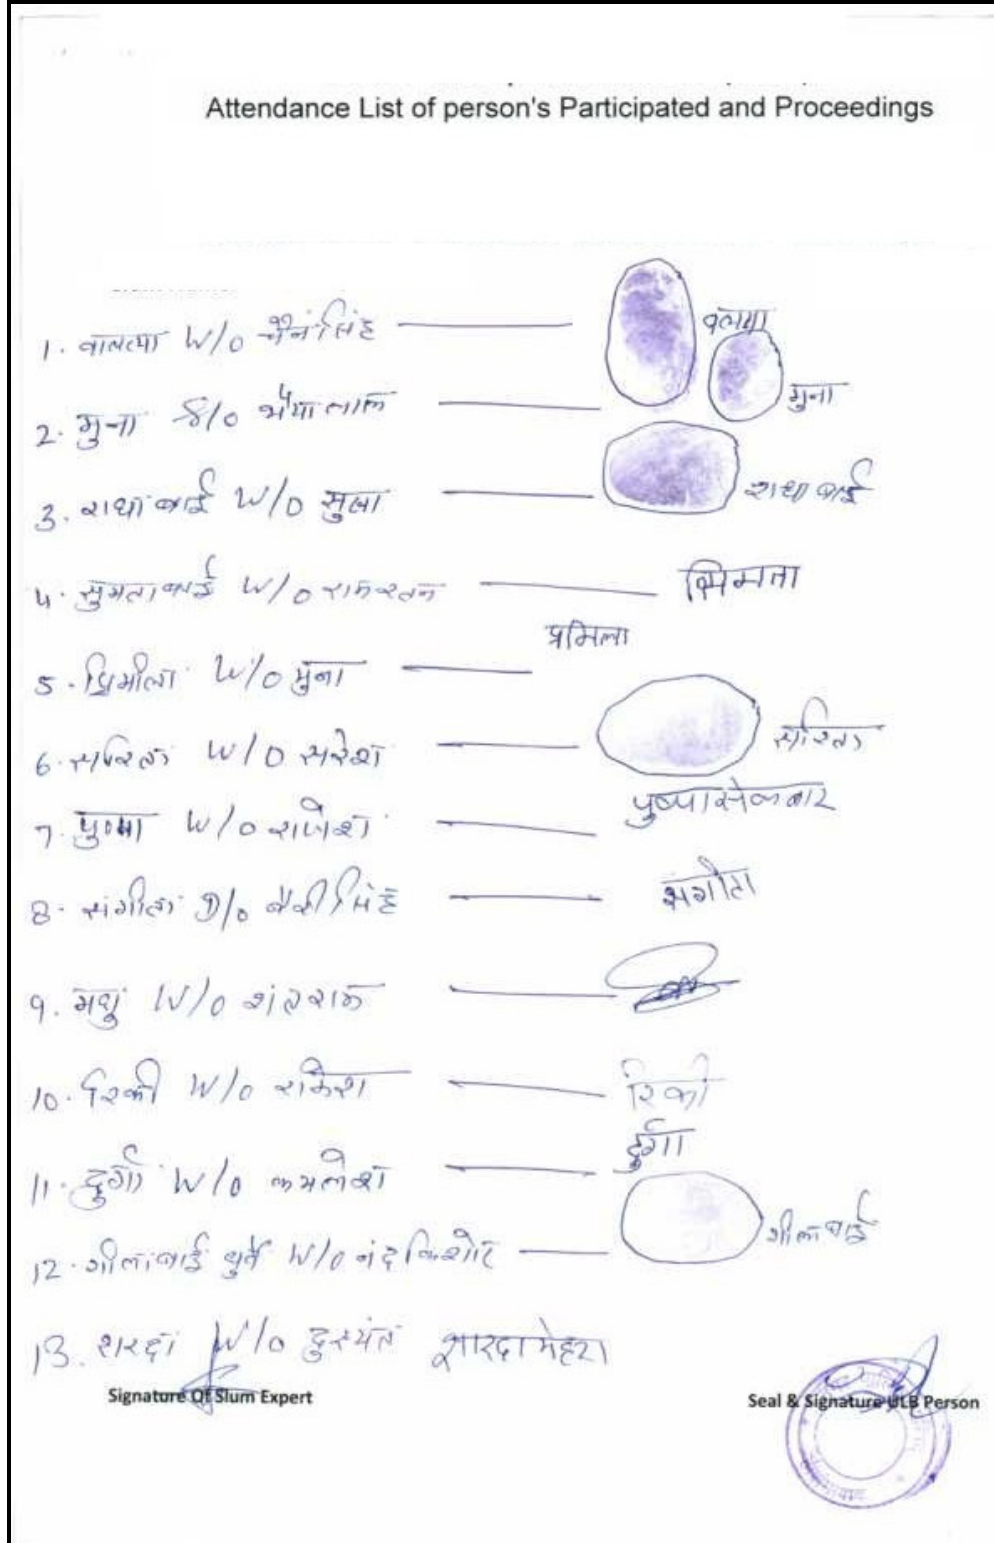 Attendance List of person's Participated and Proceedings
1. वालत्या W/O चैनसिंह वलया
2. मुना S/o भैयालाल मुना
3. राधा बाई W/O मुला राधा बाई
4. सुमताबाई W/O रामरतन
प्रमिला
5. प्रिमीला W/O मुना
6. सरिता W/O सुरेश सरिता
7. पुष्पा W/O राजेश पुष्पा
8. संगीता D/o सिंह संगीता
9. मधु W/O
10. रिंकी W/O राकेश रिंकी
11. दुर्गा W/O कमलेश दुर्गा
12. गीताबाई धुर्वे W/O नंदकिशोर गीताबाई
13. शारदा W/O दुस्यंत शारदा मेहरा
Signature Of Slum Expert
Seal & Signature ULB Person